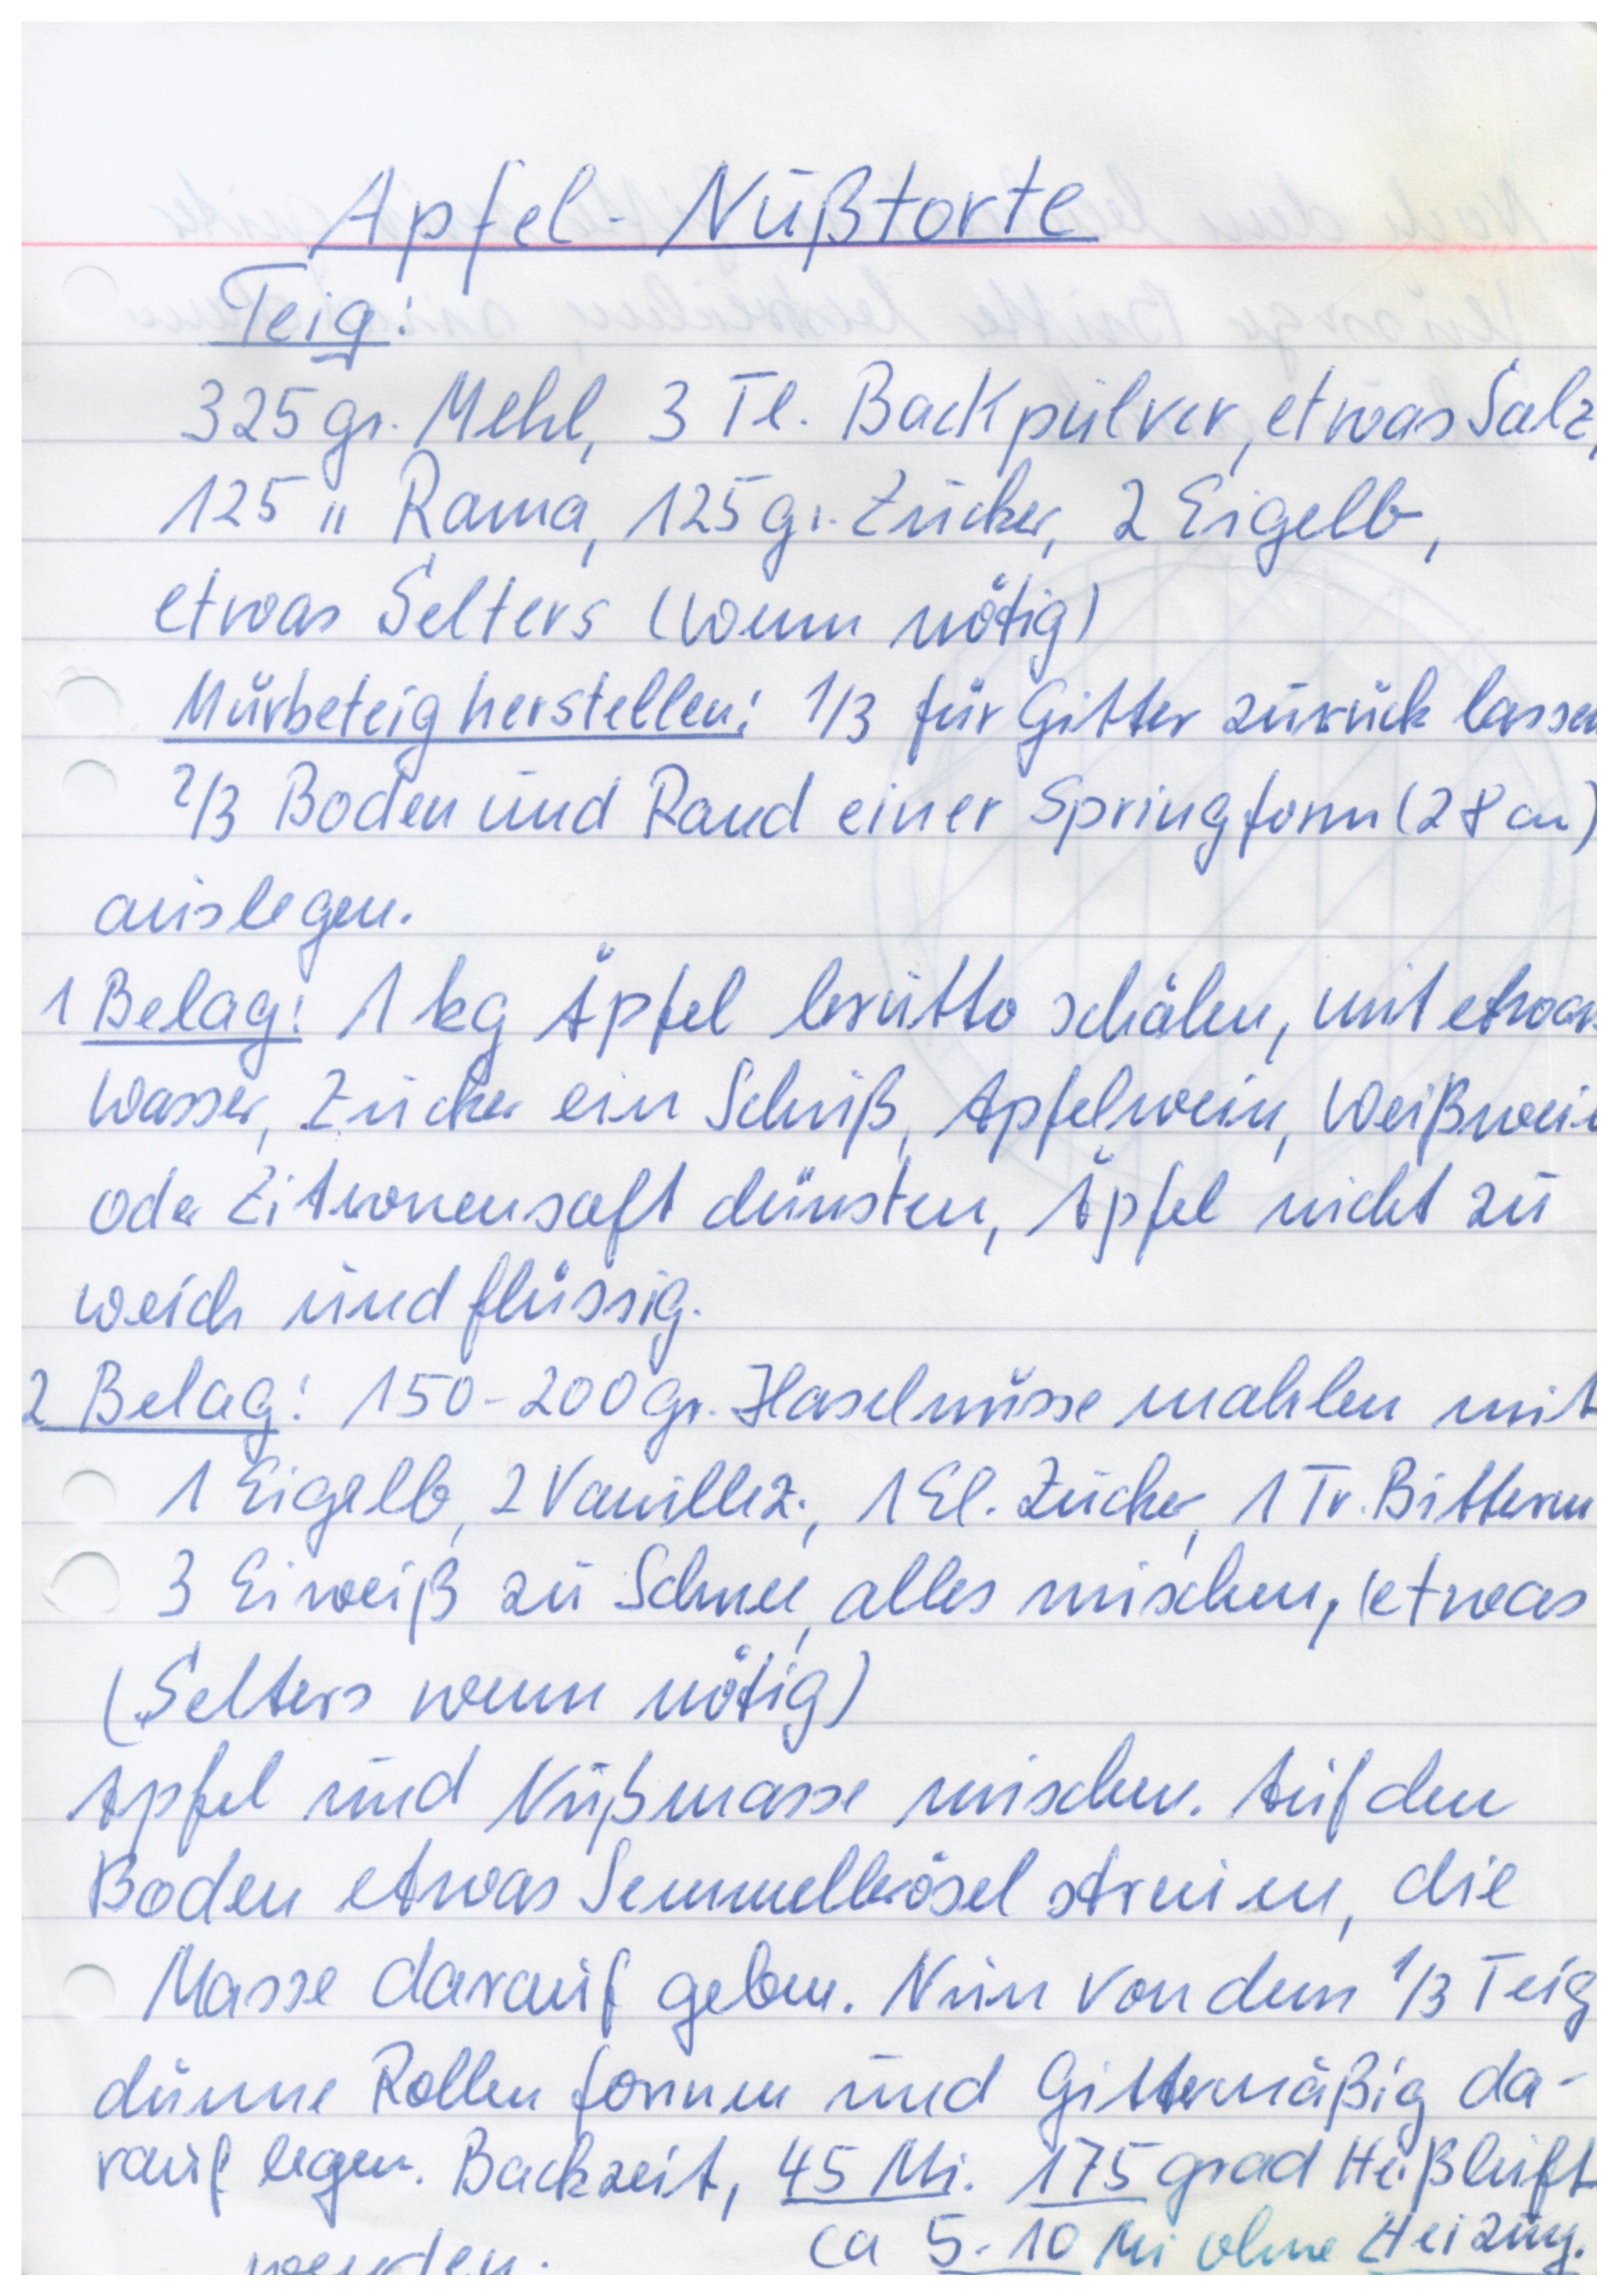 Apfel-Nußtorte
Teig:
325 gr. Mehl, 3 Tl. Backpulver, etwas Salz,
125 " Rama, 125 gr. Zucker, 2 Eigelb,
etwas Selters (wenn nötig)
Mürbeteig herstellen: 1/3 für Gitter zurück lassen
2/3 Boden und Rand einer Springform (28 cm)
auslegen.
1 Belag: 1 kg Äpfel brutto schälen, mit etwas
Wasser, Zucker ein Schuß, Apfelwein, Weißwein
oder Zitronensaft dünsten, Äpfel nicht zu
weich und flüssig.
2 Belag: 150-200 gr. Haselnüsse mahlen mit
1 Eigelb, 2 Vanillez., 1 El. Zucker, 1 Tr. Bitterm
3 Eiweiß zu Schnee, alles mischen, (etwas
(Selters wenn nötig)
Apfel und Nußmasse mischen. Auf den
Boden etwas Semmelbrösel streuen, die
Masse darauf geben. Nun von dem 1/3 Teig
dünne Rollen formen und Gittermäßig da-
rauf legen. Backzeit, 45 Mi. 175 grad Heißluft
ca 5-10 Mi ohne Heizung.
werden.